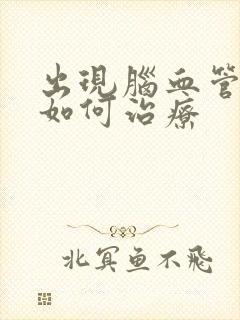 出現腦血管
如何治療
北冥鱼不飛